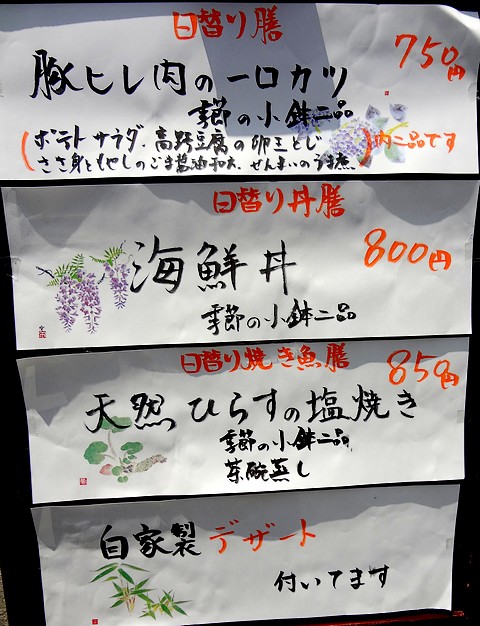 日替り膳
750円
豚ヒレ肉の一口カツ
季節の小鉢二品
(ポテトサラダ、高野豆腐の卵玉とじ
ささ身ともやしのごま醤油和え、ぜんまいのうま煮)内二品です
日替り丼膳
800円
海鮮丼
季節の小鉢二品
日替り焼き魚膳
850円
天然ひらすの塩焼き
季節の小鉢二品
茶碗蒸し
自家製デザート
付いてます